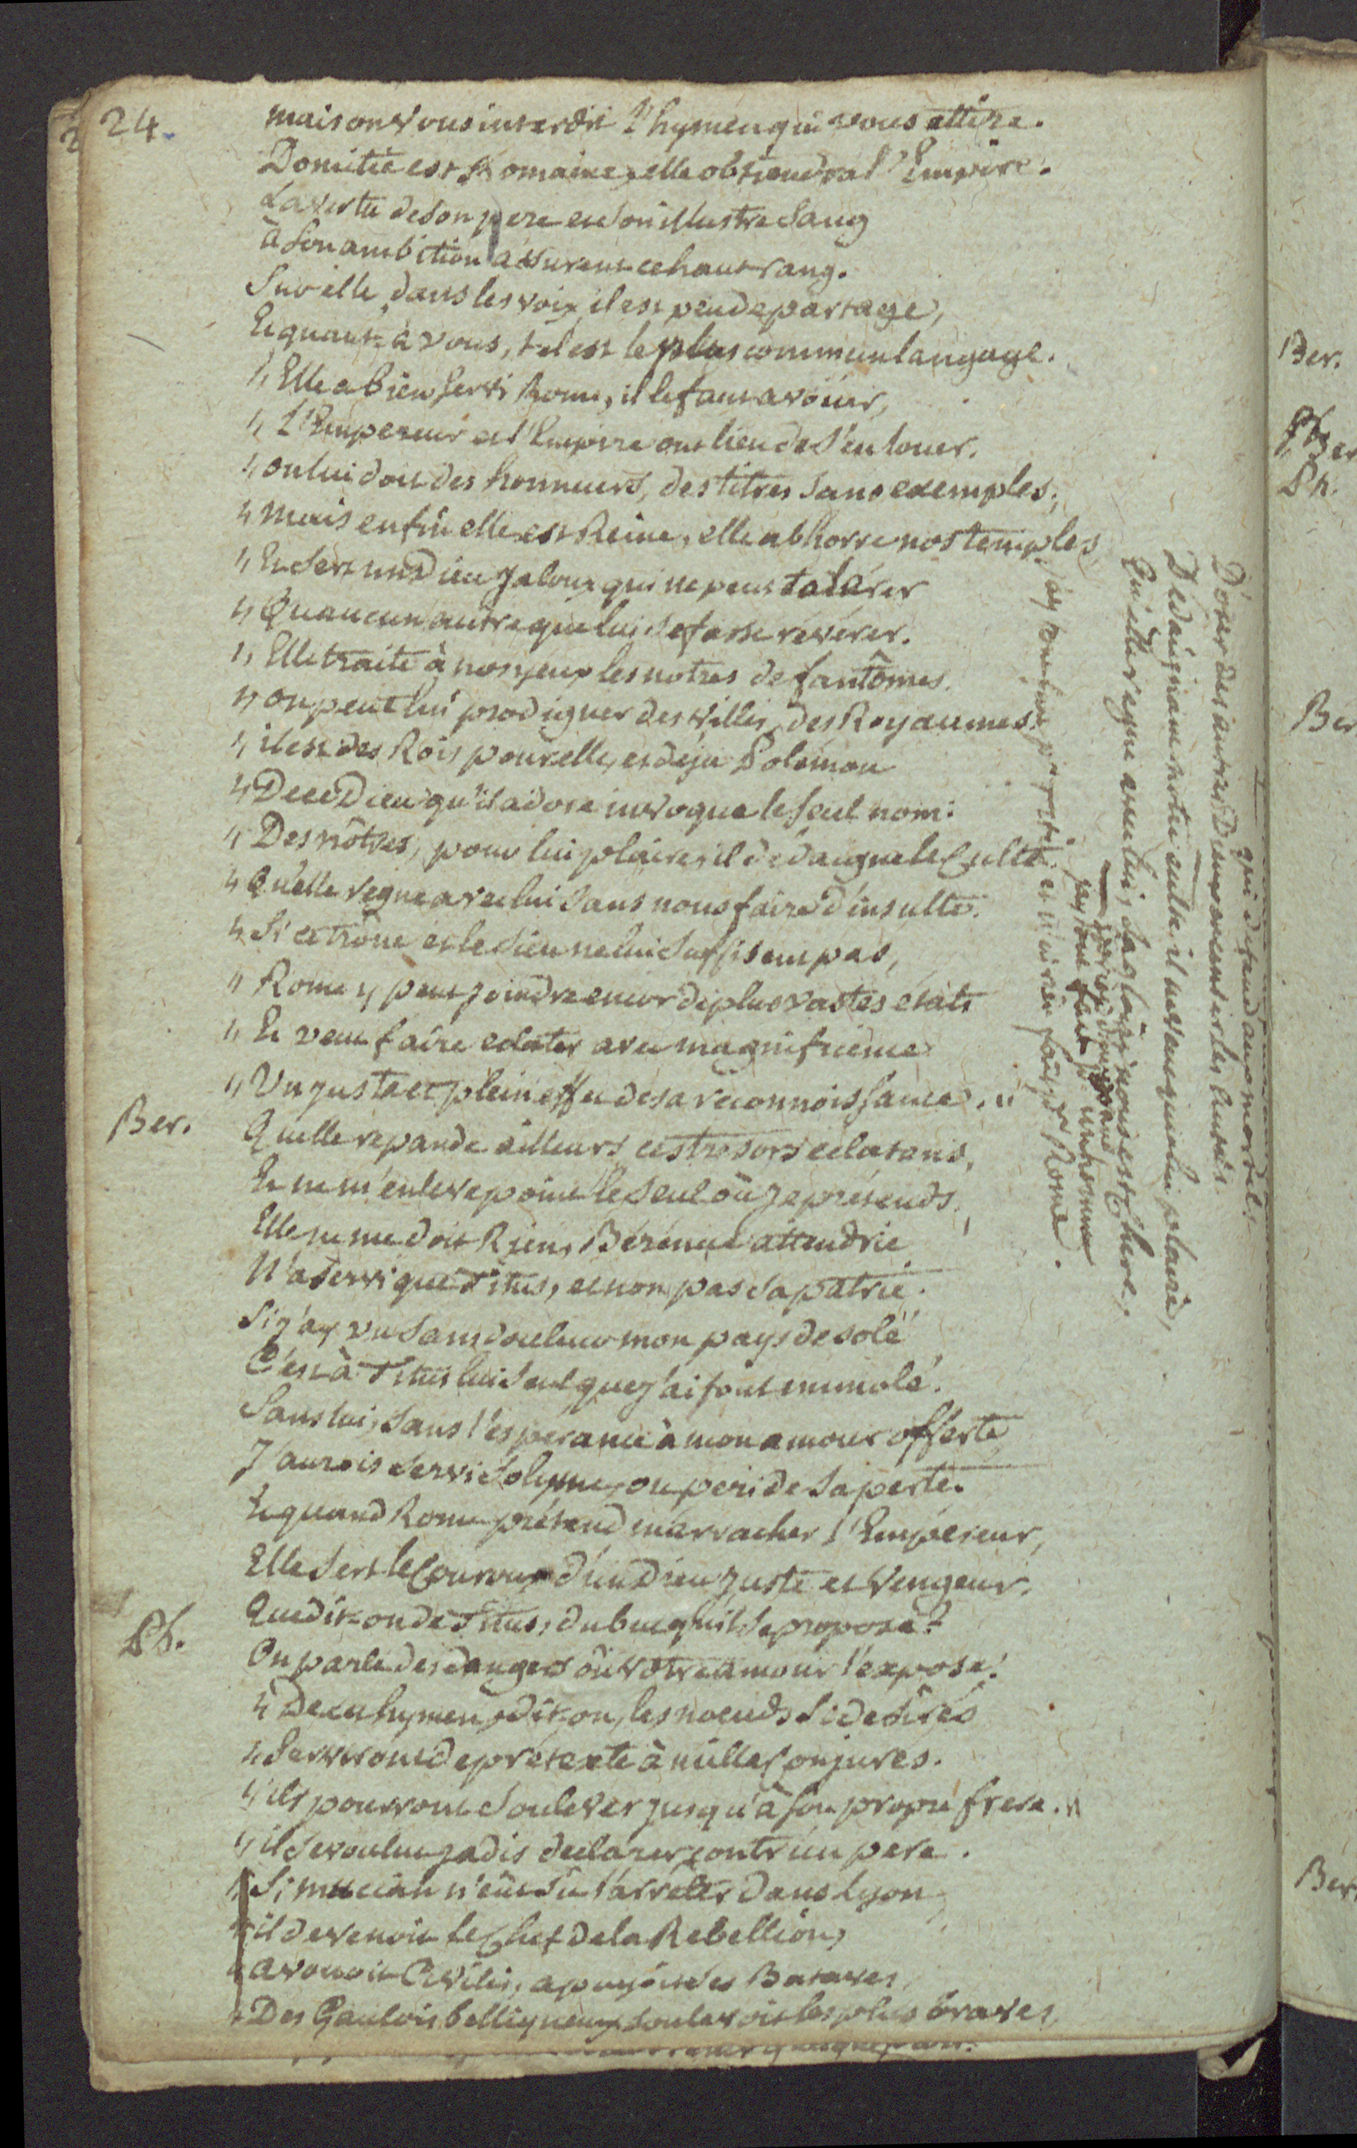 24.
mais on vous interdit l'hymen qui vous attire.
Domitie est Romaine, elle obtiendra l'Empire.
La vertu de son pere et son illustre sang
à son ambition assurent ce haut rang.
Sur elle, dans les voix il est peu de partage,
Et quant à vous, tel est le plus commun langage.
" Elle a bien servi Rome, il le faut avoüer,
" L'Empereur et l'Empire ont lieu de s'en louer.
" on lui doit des honneurs, des titres sans exemples,
" mais enfin elle est Reine, elle abhorre nos temples
" Et sert un Dieu jaloux qui ne peut tolérer
" Qu'aucun autre que lui se fasse révérer.
" Elle traite à nos yeux les notres de fantômes.
" on peut lui prodiguer des villes, des Royaumes.
" il est des Rois pour elle, et déja Polémon
" De ce Dieu qu'il adore invoque le seul nom:
" Des nôtres, pour lui plaire, il dédaigne le Culte.
" Qu'elle regne avec lui sans nous faire d'insulte.
" Si ce trône et le sien ne lui suffisent pas,
" Rome y peut joindre encor de plus vastes états
" Et veut faire eclater avec magnificence
" Un juste et plein effet de sa reconnoissance. "
Ber.
Qu'elle repande ailleurs ces tresors eclatans,
Et ne m'enleve point le seul où je prétends.
Elle ne me doit Rien, Bérénice attendrie
N'a servi que Titus, et non pas sa patrie.
Si j'ay vu sans douleur mon pays desolé
C'est à Titus lui seul que j'ai tout immolé.
Sans lui, sans l'esperance à mon amour offerte
J'aurois servi Solyme, ou peri de sa perte.
Et quand Rome prétend m'arracher l'Empereur,
Elle sert le Couroux d'un Dieu juste et Vengeur.
Que dit on de Titus, du but qu'il se propose?
Ph.
On parle des dangers où votre amour l'expose.
" De cet hymen, dit on, les noeuds si desirés
" Serviront de pretexte à mille Conjurés.
" ils pourront soulever jusqu'à son propre frere. "
" il se voulut jadis declarer contre un pere.
" Si mucien n'eût su l'arreter dans Lyon
" il devenoit le Chef de la Rebellion,
" avouoit Civilis, apuyoit les Bataves,
" Des Gaulois belliqueux soulevoit les plus braves,
qui defend au mortel
D'oser des autres Dieux encenser les autels.
Dedaignant notre culte il ne veut que lui plaire,
Qu'elle regne avec lui, sa gloire nous est chere,
un homme
et n'ai rien fait pr Rome.
Ber.
Ph.
Ber
Ber.